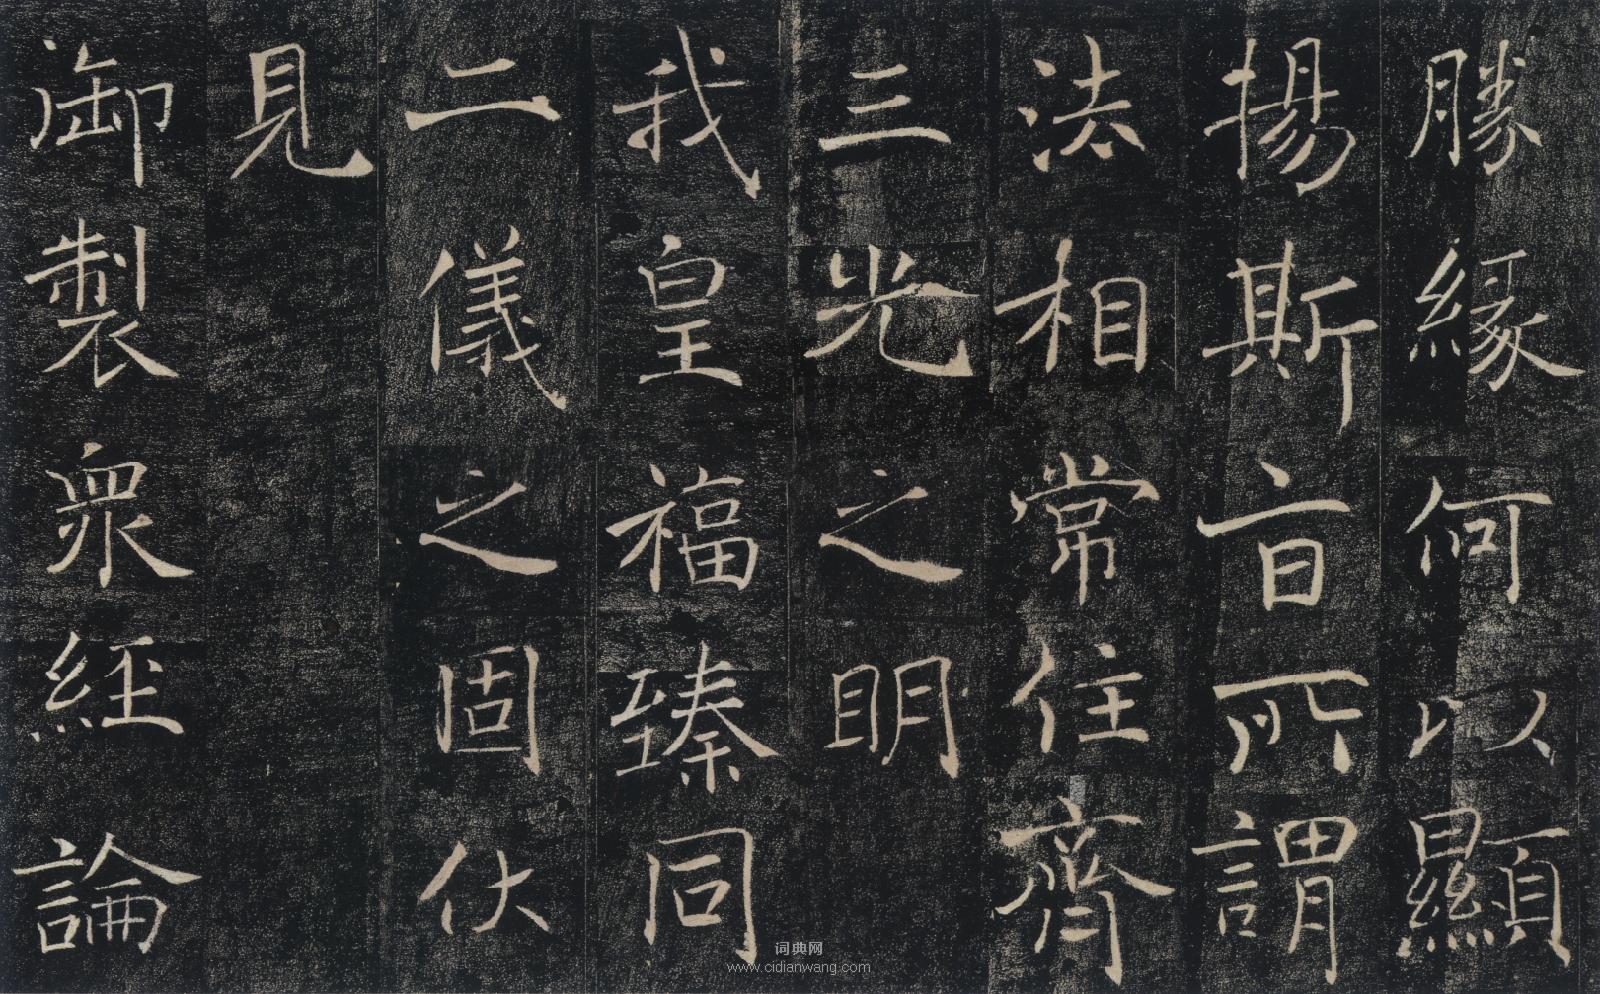 勝緣何以顯
揚斯旨所謂
法相常住齊
三光之明
我皇福臻同
二儀之固伏
見
御製衆經論
词典网
www.cidianwang.com